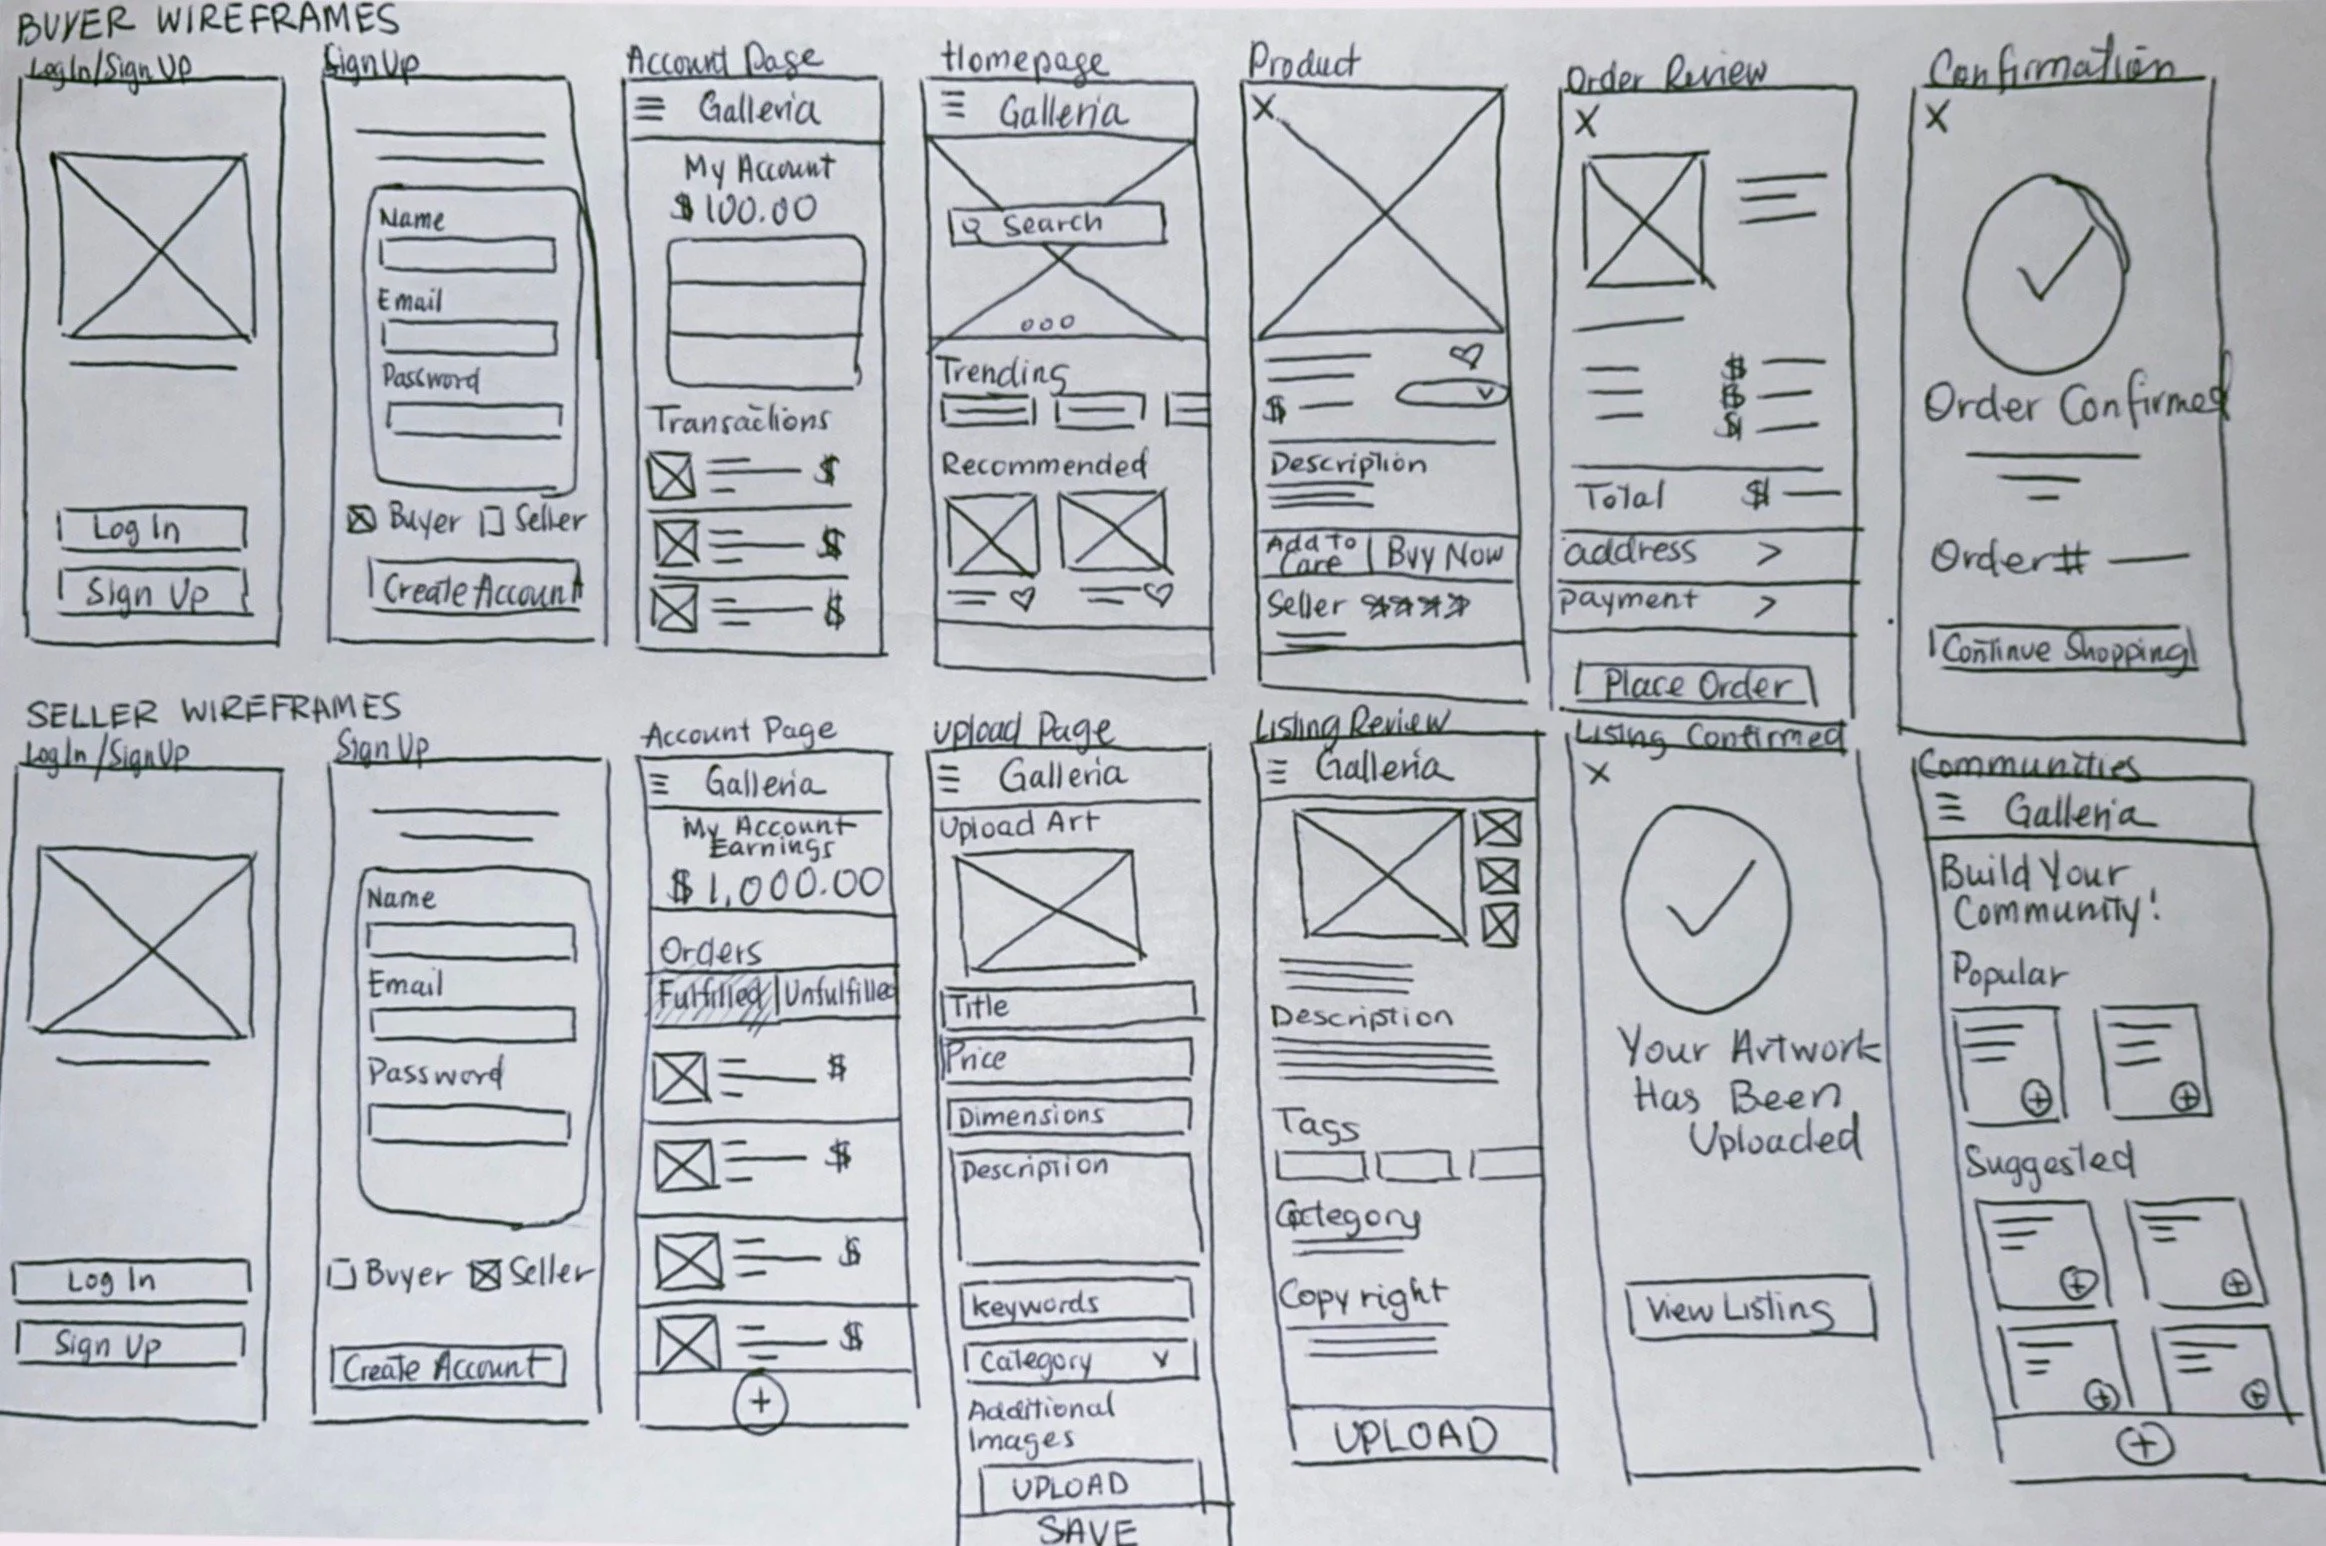 BUYER WIREFRAMES
Log In/Sign Up
Log In
Sign Up
Sign Up
Name
Email
Password
Buyer Seller
Create Account
Account Page
Galleria
My Account
$100.00
Transactions
$
$
$
Homepage
Galleria
Search
Trending
Recommended
Product
X
$
Description
Add To
Care
Buy Now
Seller
Order Review
X
$
$
$
Total $
address >
payment >
Place Order
Confirmation
X
Order Confirmed
Order#
Continue Shopping
SELLER WIREFRAMES
Log In/Sign Up
Log In
Sign Up
Sign Up
Name
Email
Password
Buyer Seller
Create Account
Account Page
Galleria
My Account
Earnings
$1,000.00
Orders
Fulfilled Unfulfilled
$
$
$
$
+
Upload Page
Galleria
Upload Art
Title
Price
Dimensions
Description
Keywords
Category
Additional
Images
UPLOAD
SAVE
Listing Review
Galleria
Description
Tags
Category
Copyright
UPLOAD
Listing Confirmed
X
Your Artwork
Has Been
Uploaded
View Listing
Communities
Galleria
Build Your
Community!
Popular
+ +
Suggested
+ +
+ +
+